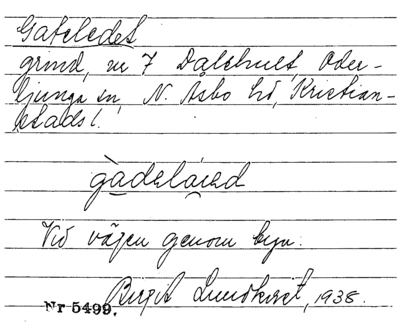 Gateledet
grind, nr 7 Dalshult, Oder-
ljunga sn, N. Åsbo hd, Kristian-
stads l.
gàdeláed
Vid vägen genom byn.
Birgit Lundkvist, 1938.
Nr 5499.